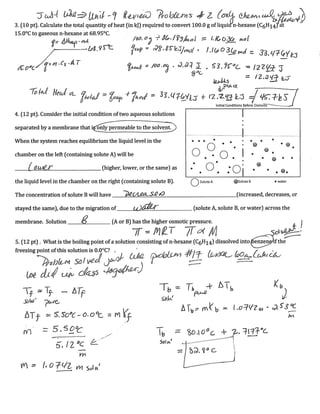 Just like ⇒ Unit-9 Review Problems #2 (only chemical was different)
3. (10 pt). Calculate the total quantity of heat (in kJ) required to convert 100.0 g of liquid n-hexane (C6H14) at
15.0°C to gaseous n-hexane at 68.95°C.
100.0g ÷ 86.18g/mol = 1.16036 mol
q = ΔHvap·mol
68.95°C
qvap = 28.85 kJ/mol · 1.16036 mol = 33.4764 kJ
15.0°C
q = m·Cs·ΔT
qliquid = 100.0g · 2.27 J/g°C · 53.95°C = 12247 J
= 12.247 kJ
Total Heat = qtotal = qvap + qliquid = 33.4764 kJ + 12.247 kJ = 45.7 kJ
Initial Conditions Before Osmosis
4. (12 pt). Consider the initial condition of two aqueous solutions
separated by a membrane that is only permeable to the solvent.
When the system reaches the equilibrium liquid level in the
chamber on the left (containing solute A) will be
Lower (higher, lower, or the same) as
the liquid level in the chamber on the right (containing solute B).
Solute A Solute B water
The concentration of solute B will have decreased (increased, decreases, or
stayed the same), due to the migration of water (solute A, solute B, or water) across the
membrane. Solution B (A or B) has the higher osmotic pressure.
π = MRT π ∝ M
solvent
5. (12 pt). What is the boiling point of a solution consisting of n-hexane (C6H14) dissolved into benzene if the
freezing point of this solution is 0.0°C?
Problem solved just like problem #17 (which
we did in class together)
Tf = Tf − ΔTf
soln' pure
Tb = Tb + ΔTb
soln' pure
Kb
ΔTf = 5.50°C - 0.0°C = mKf
ΔTb = mKb = 1.0742m · 2.53°C/m
m = 5.50°C
5.12 °C/m
Tb = 80.10°C + 2.7177°C
soln'
m = 1.0742 m soln'
= 82.8°C